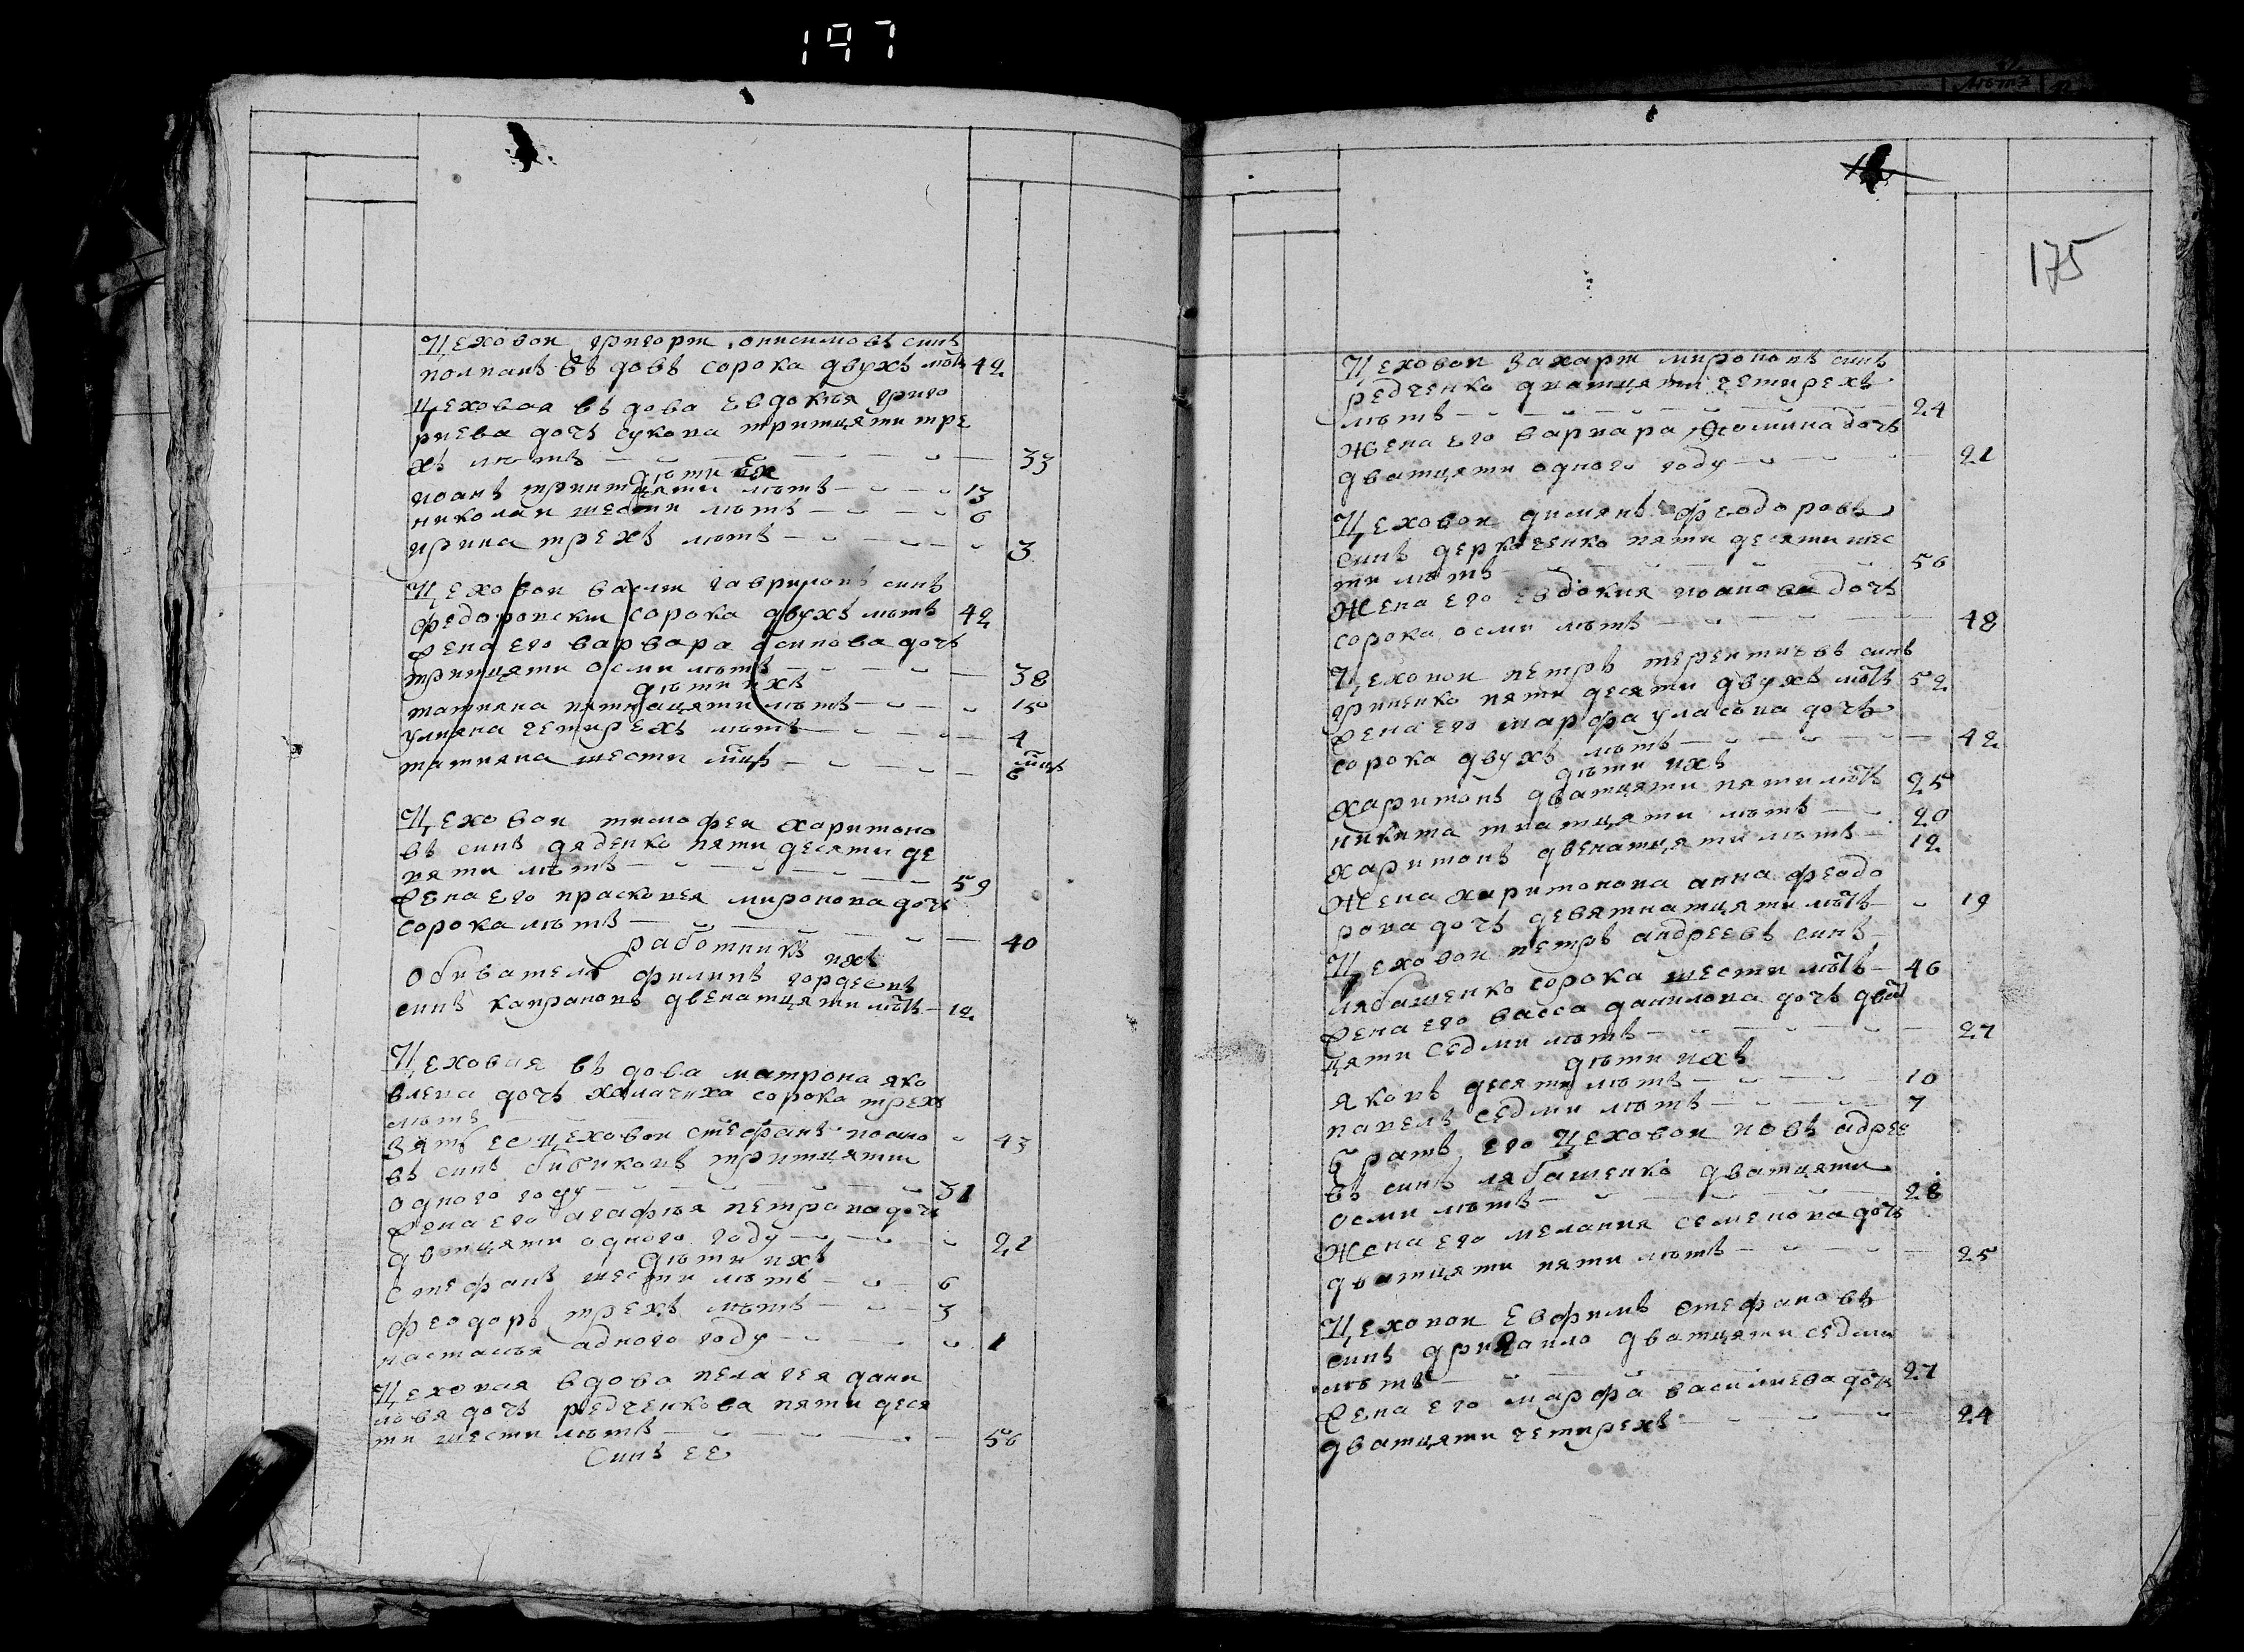 197
Цеховои григори онисимовъ синъ
полпанъ въ довъ сорока двухъ лѣтъ 42
Цеховая въ дова евдокѣя григо
риева дочъ сукова тритцяти тре
хъ лѣтъ 33
дѣти ея
иоанъ тринтцяти лѣтъ 13
николаи шести лѣтъ 6
ирина трехъ лѣтъ 3
Цеховои васили гавриловъ синъ
федоровски сорока двухъ лѣтъ 42
Жена его варвара осипова дочъ
тритцяти осми лѣтъ 38
дѣти ихъ
татияна пятнацяти лѣтъ 15
улияна четирехъ лѣтъ 4
татияна шести мцъ 6 мцъ
Цеховои тимофеи харитоно
въ синъ дяденко пяти десяти де
вяти лѣтъ 59
Жена его прасковея миронова дочъ
сорока лѣтъ 40
работникъ ихъ
Обиватель филипъ гордеевъ
синъ капрановъ двенатцяти лѣтъ 12
Цеховия въ дова матрона яко
влева дочъ халачиха сорока трехъ
лѣтъ 43
Зять ее цеховои стефанъ иоано
въ синъ бибиковъ тритцяти
одного году 31
Жена его агафѣя петрова дочъ
дватцяти одного году 21
дѣти ихъ
Стефанъ шести лѣтъ 6
феодоръ трехъ лѣтъ 3
настасѣя адного году 1
Цеховая вдова пелагея дани
лова дочъ редченкова пяти деся
ти шести лѣтъ 56
Синъ ее
175
Цеховои Захари мироновъ синъ
редченко дватцяти четирехъ
лѣтъ 24
Жена его варвара фомина дочъ
дватцяти одного году 21
Цеховои димянъ феодоровъ
синъ деркаченко пяти десяти шес
ти лѣтъ 56
Жена его евдокия иоанова дочъ
сорока осми лѣтъ 48
Цеховои петръ терентиевъ синъ
гриненко пяти десяти двухъ лѣтъ 52
Жена его марфа уласова дочъ
сорока двухъ лѣтъ 42
дѣти ихъ
харитонъ дватцяти пяти лѣтъ 25
никита дватцяти лѣтъ 20
харитонъ двенатцяти лѣтъ 12
Жена харитонова анна феодо
рова дочъ девятнатцяти лѣтъ 19
Цеховои петръ андреевъ синъ
лябашенко сорока шести лѣтъ 46
Жена его васса данилова дочъ двад
цяти седми лѣтъ 27
дѣти ихъ
яковъ десяти лѣтъ 10
павелъ седми лѣтъ 7
братъ его цеховои иовъ адрее
въ синъ лябашенко дватцяти
осми лѣтъ 28
Жена его мелания семенова дочъ
дватцяти пяти лѣтъ 25
Цеховои Евфимъ Стефановъ
синъ дватцяти седми
лѣтъ 27
Жена его марфа василиева дочъ
дватцяти четирехъ 24